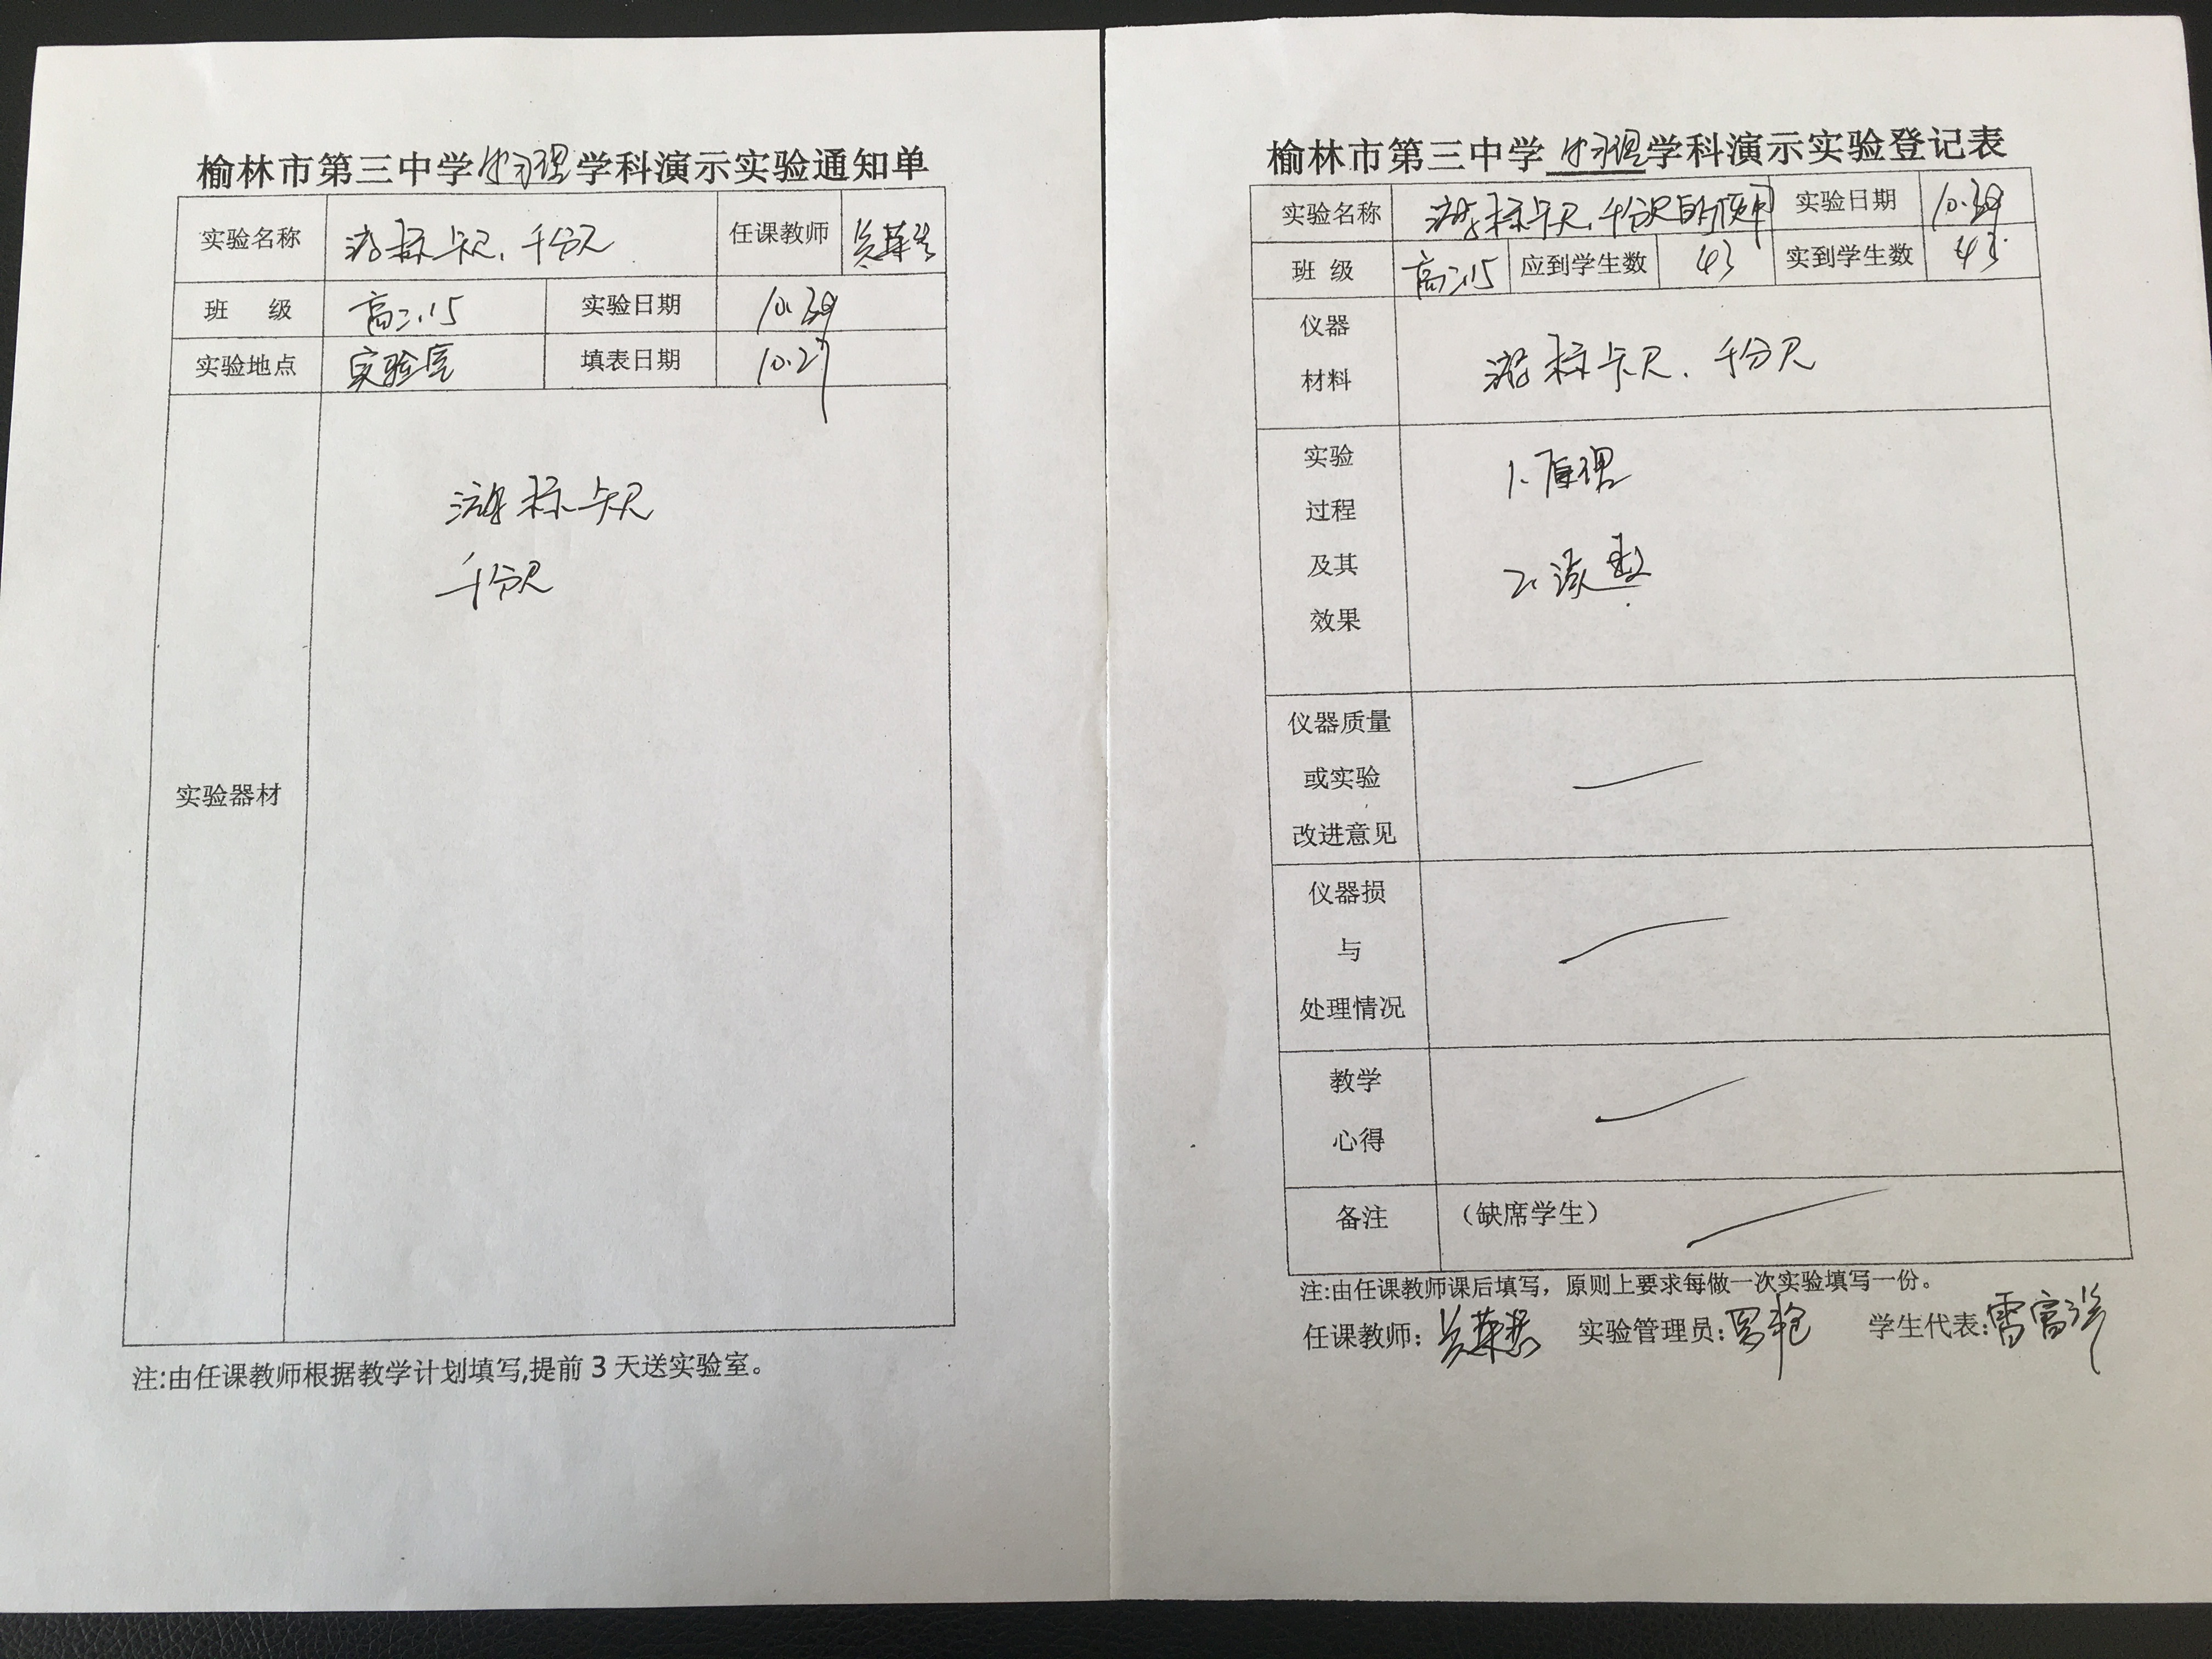 榆林市第三中学物理学科演示实验通知单
实验名称 游标卡尺、千分尺 任课教师
班 级 高二.15 实验日期 10.30
实验地点 实验室 填表日期 10.27
实验器材
游标卡尺
千分尺
注:由任课教师根据教学计划填写,提前 3 天送实验室。
榆林市第三中学 物理学科演示实验登记表
实验名称 游标卡尺、千分尺的使用 实验日期 10.30
班 级 高二.15 应到学生数 43 实到学生数 43
仪器
材料
游标卡尺、千分尺
实验
过程
及其
效果
1、原理
2、读数
仪器质量
或实验
改进意见
仪器损
与
处理情况
教学
心得
备注 （缺席学生）
注:由任课教师课后填写，原则上要求每做一次实验填写一份。
任课教师： 实验管理员: 学生代表:雷富祥